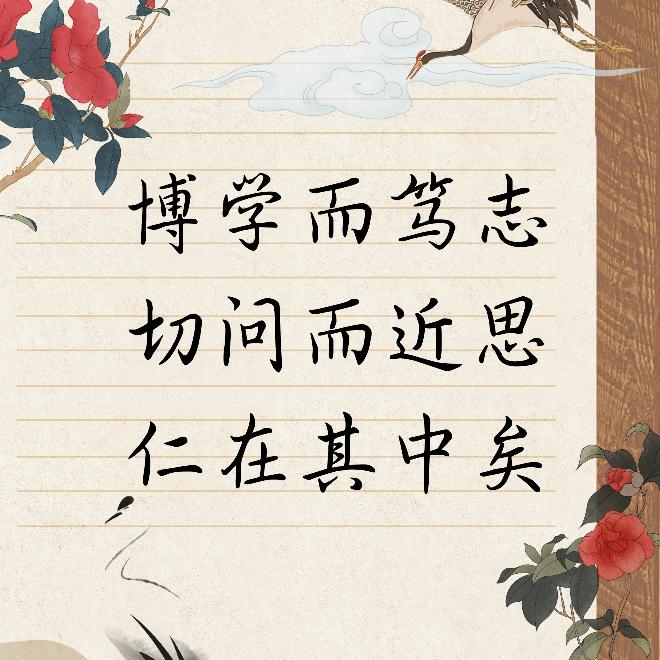 博学而笃志
切问而近思
仁在其中矣